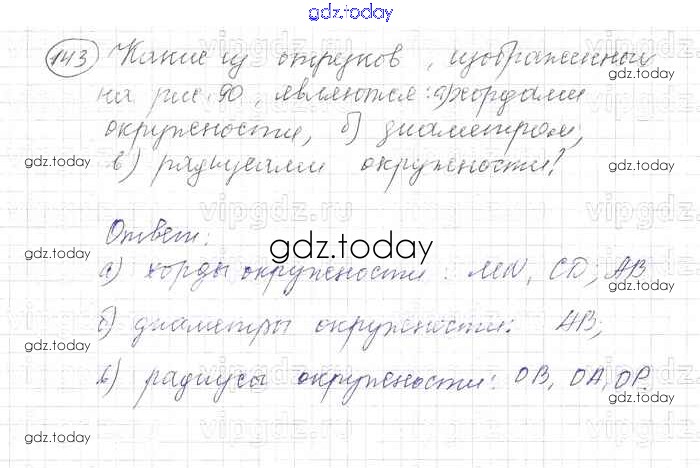 gdz.today
143 Какие из отрезков, изображенных
на рис. 90, являются: а) хордами
окружности, б) диаметром,
в) радиусами окружности?
Ответ:
а) хорды окружности: MN, CD; AB
б) диаметры окружности: AB;
в) радиусы окружности: OB, OA, OP.
gdz.today
gdz.today
gdz.today
gdz.today
gdz.today
gdz.today
gdz.today
gdz.today
gdz.today
vipgdz.ru
vipgdz.ru
vipgdz.ru
vipgdz.ru